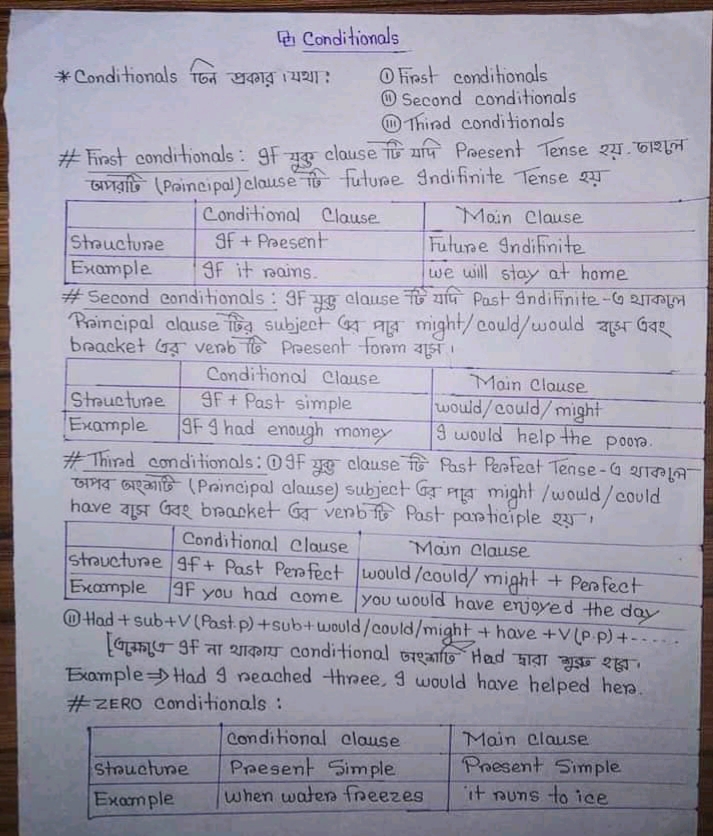 Conditionals
* Conditionals তিন প্রকার । যথা : ① First conditionals
② Second conditionals
③ Third conditionals
# First conditionals : If যুক্ত clause টি যদি Present Tense হয়. তাহলে
অপরটি (Principal) clause টি future Indifinite Tense হয়
Conditional Clause Main Clause
Structure If + Present Future Indifinite
Example If it rains. we will stay at home
# Second conditionals : If যুক্ত clause টি যদি Past Indifinite -এ থাকলে
Principal clause টির subject এর পরে might/could/would বসে এবং
bracket এর verb টি Present form বসে ।
Conditional Clause Main Clause
Structure If + Past simple would/could/might
Example If I had enough money I would help the poor.
# Third conditionals : ① If যুক্ত clause টি Past Perfect Tense -এ থাকলে
অপর অংশটি (Principal clause) subject এর পরে might /would/could
have বসে এবং bracket এর verb টি Past participle হয় ।
Conditional Clause Main Clause
structure If + Past Perfect would/could/ might + Perfect
Example If you had come you would have enjoyed the day
② Had + sub + V (Past.p) + sub + would/could/might + have + V (P.P) + .....
[এক্ষেত্রে If না থাকায় conditional অংশটি Had দ্বারা শুরু হবে ।
Example ⇒ Had I reached three, I would have helped her.
# ZERO conditionals :
conditional clause Main clause
Structure Present Simple Present Simple
Example when water freezes it runs to ice